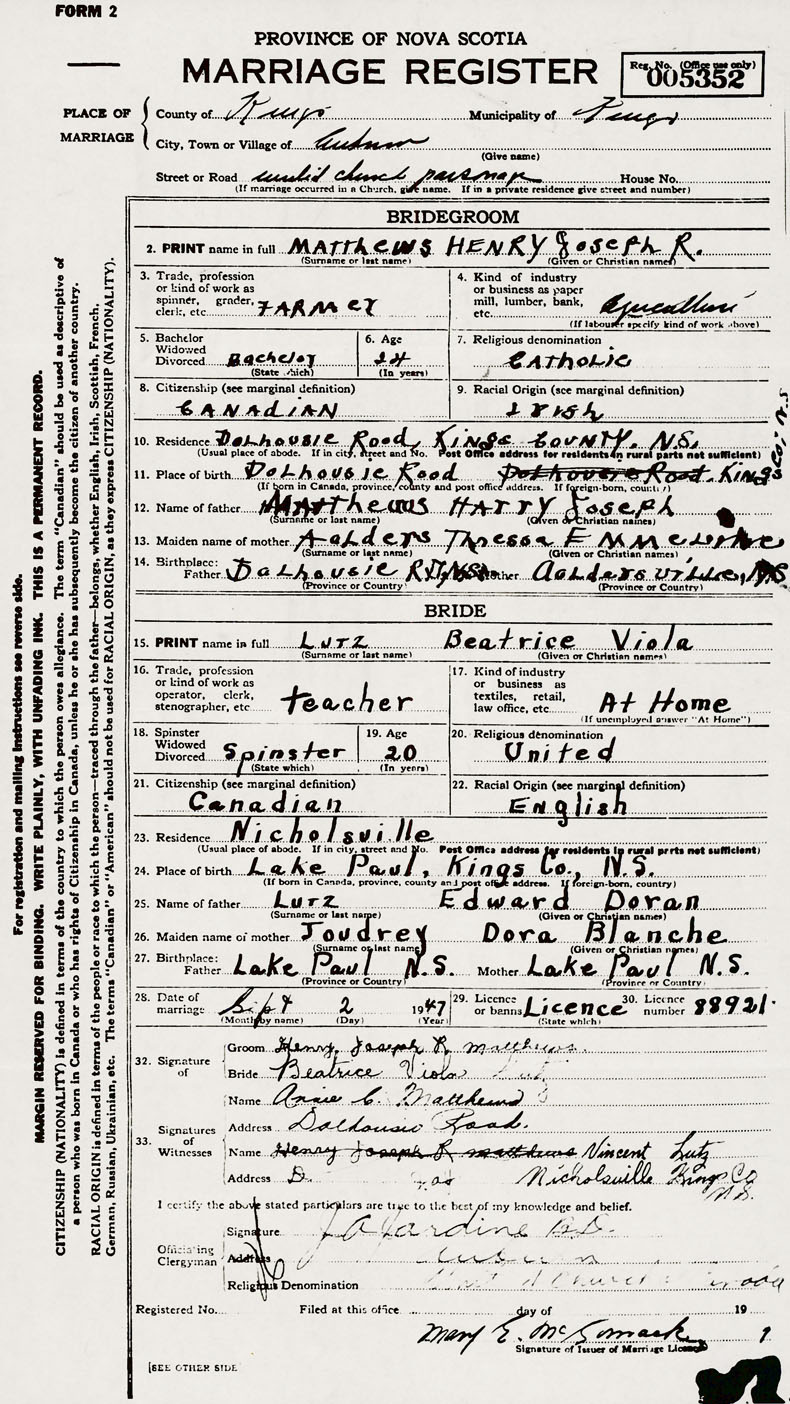 FORM 2
PROVINCE OF NOVA SCOTIA
MARRIAGE REGISTER
Reg. No. (Office use only)
005352
PLACE OF MARRIAGE
County of Kings Municipality of Kings
City, Town or Village of Auburn
(Give name)
Street or Road United church parsonage House No.
(If marriage occurred in a Church, give name. If in a private residence give street and number)
BRIDEGROOM
2. PRINT name in full MATTHEWS HENRY Joseph R.
(Surname or last name) (Given or Christian names)
3. Trade, profession or kind of work as spinner, grader, clerk, etc. FARMER
4. Kind of industry or business as paper mill, lumber, bank, etc. Agriculture
(If labourer specify kind of work above)
5. Bachelor Widowed Divorced Bachelor
(State which)
6. Age 24
(In years)
7. Religious denomination CATHOLIC
8. Citizenship (see marginal definition) CANADIAN
9. Racial Origin (see marginal definition) IRISH
10. Residence Dalhousie Road, Kings County. N.S.
(Usual place of abode. If in city, street and No. Post Office address for residents in rural parts not sufficient)
11. Place of birth Dolhousie Road Dolhousie Road. Kings Co, N.S
(If born in Canada, province, county and post office address. If foreign-born, country)
12. Name of father Matthews HARRY Joseph
(Surname or last name) (Given or Christian names)
13. Maiden name of mother Aalders Thressa
(Surname or last name) (Given or Christian names)
14. Birthplace: Father Dalhousie Rd, N.S. Mother Aaldersville, N.S
(Province or Country) (Province or Country)
BRIDE
15. PRINT name in full Lutz Beatrice Viola
(Surname or last name) (Given or Christian names)
16. Trade, profession or kind of work as operator, clerk, stenographer, etc. teacher
17. Kind of industry or business as textiles, retail, law office, etc. At Home
(If unemployed answer "At Home")
18. Spinster Widowed Divorced Spinster
(State which)
19. Age 20
(In years)
20. Religious denomination United
21. Citizenship (see marginal definition) Canadian
22. Racial Origin (see marginal definition) English
23. Residence Nicholsville
(Usual place of abode. If in city, street and No. Post Office address for residents in rural parts not sufficient)
24. Place of birth Lake Paul, Kings Co., N.S.
(If born in Canada, province, county and post office address. If foreign-born, country)
25. Name of father Lutz Edward Doran
(Surname or last name) (Given or Christian names)
26. Maiden name of mother Joudrey Dora Blanche
(Surname or last name) (Given or Christian names)
27. Birthplace: Father Lake Paul N.S. Mother Lake Paul N.S.
(Province or Country) (Province or Country)
28. Date of marriage Sept 2 1947
(Month by name) (Day) (Year)
29. Licence or banns Licence
(State which)
30. Licence number 88921
32. Signature of
Groom Henry Joseph R Matthews.
Bride Beatrice Viola Lutz
33. Signatures of Witnesses
Name Annie C. Matthews
Address Dalhousie Road.
Name Henry Joseph R Matthews Vincent Lutz
Address D. Nicholsville Kings Co N.S.
I certify the above stated particulars are true to the best of my knowledge and belief.
Officiating Clergyman
Signature J A Jardine B.D.
Address Auburn
Religious Denomination United Church Canada
Registered No. Filed at this office day of 19
Mary E. McCormack
Signature of Issuer of Marriage Licence
[SEE OTHER SIDE
For registration and mailing instructions see reverse side.
MARGIN RESERVED FOR BINDING. WRITE PLAINLY, WITH UNFADING INK. THIS IS A PERMANENT RECORD.
CITIZENSHIP (NATIONALITY) is defined in terms of the country to which the person owes allegiance. The term "Canadian" should be used as descriptive of
a person who was born in Canada or who has rights of Citizenship in Canada, unless he or she has subsequently become the citizen of another country.
RACIAL ORIGIN is defined in terms of the people or race to which the person—traced through the father—belongs, whether English, Irish, Scottish, French,
German, Russian, Ukrainian, etc. The terms "Canadian" or "American" should not be used for RACIAL ORIGIN, as they express CITIZENSHIP (NATIONALITY).